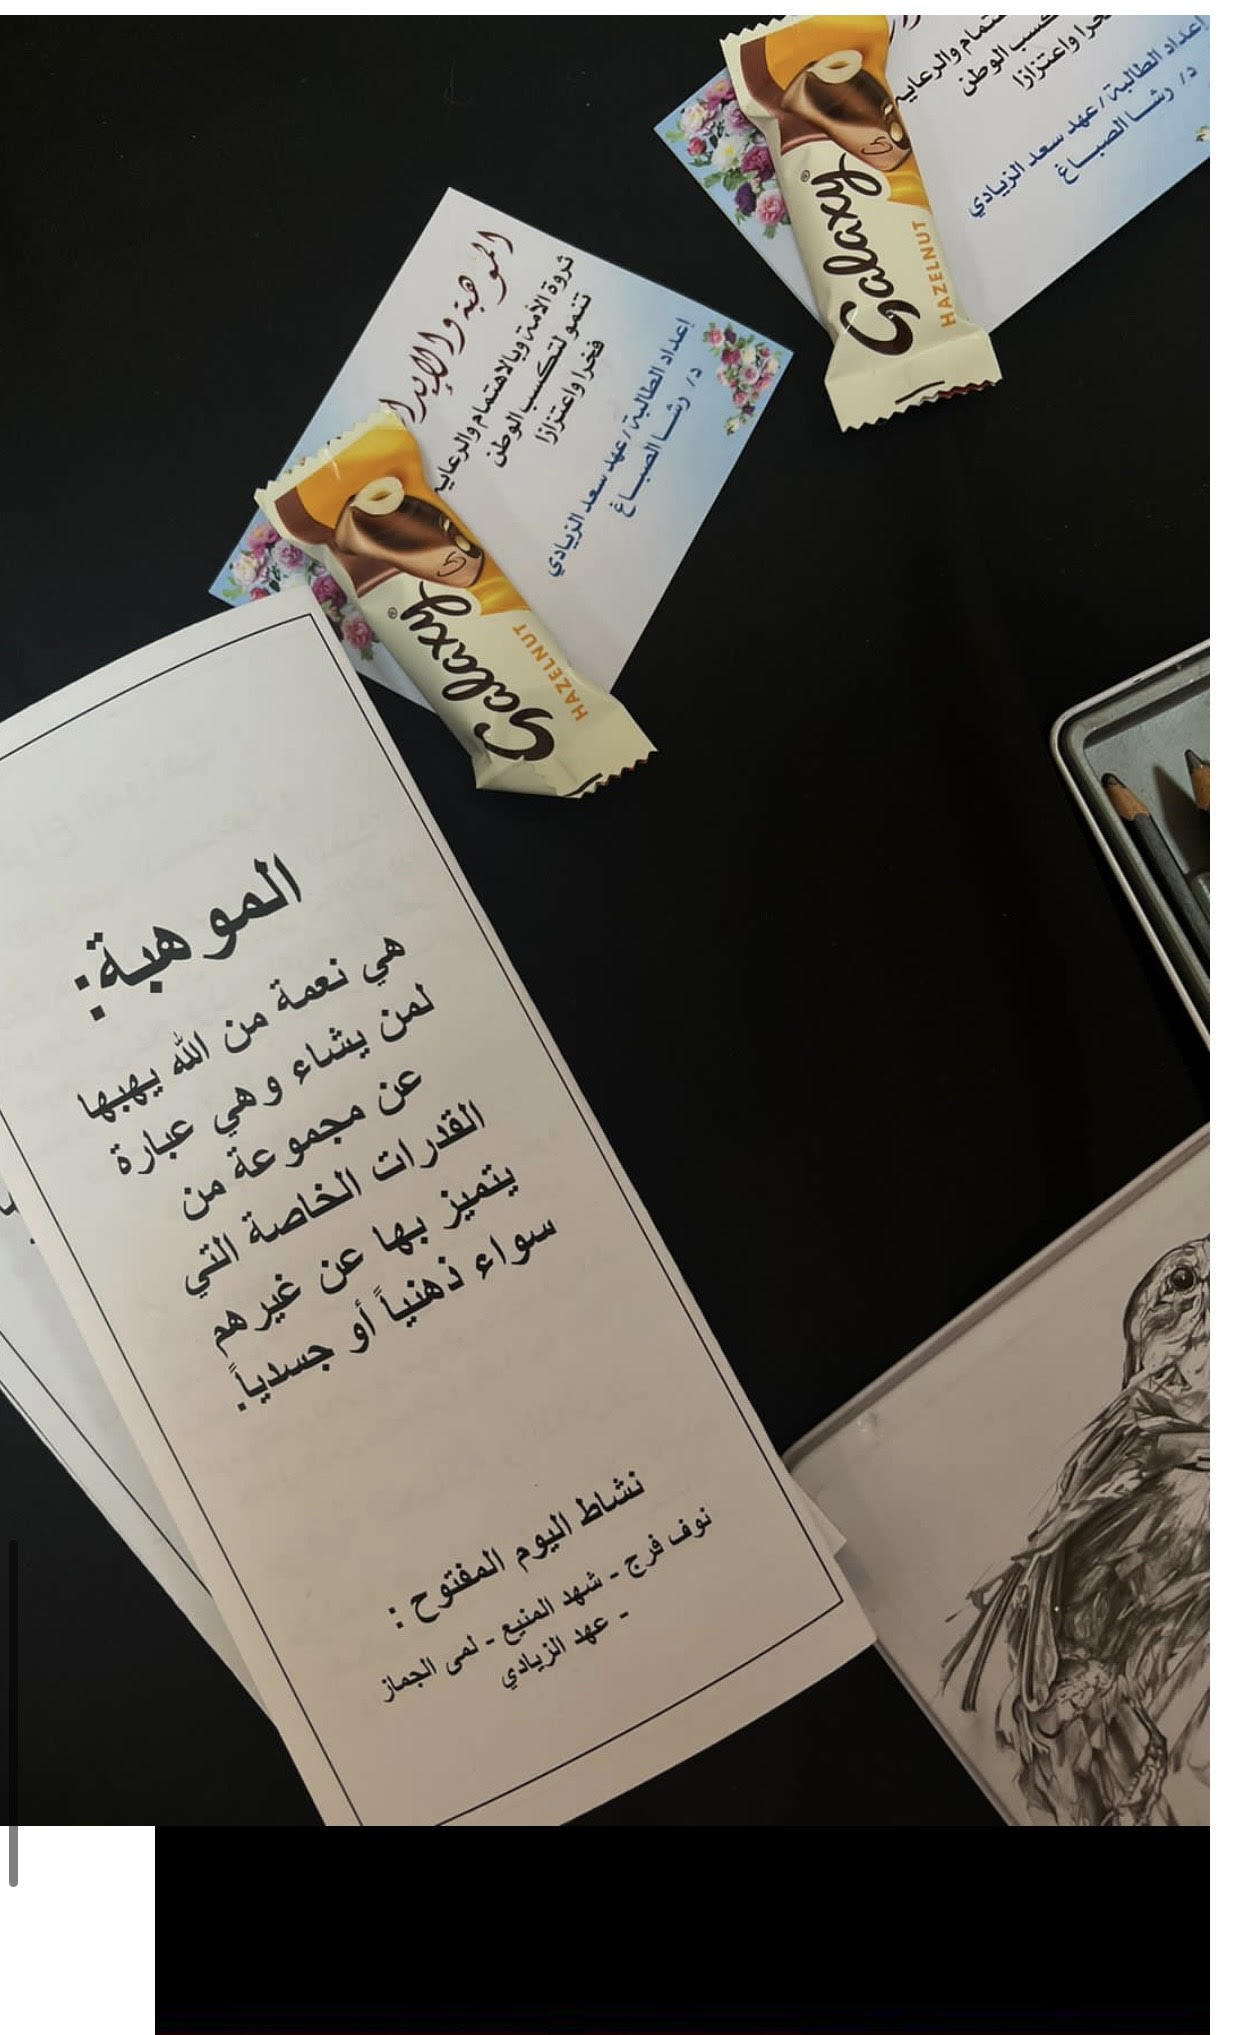 تمام والرعاية
كسب الوطن
فخرا واعتزازا
إعداد الطالبة / عهد سعد الزيادي
د/ رشا الصباغ
Galaxy
HAZELNUT
الموهبة والإبدا
ثروة الأمة وبالاهتمام والرعاية
تنمو لتكسب الوطن
فخرا واعتزازا
إعداد الطالبة / عهد سعد الزيادي
د/ رشا الصباغ
Galaxy
HAZELNUT
الموهبة:
هي نعمة من الله يهبها
لمن يشاء وهي عبارة
عن مجموعة من
القدرات الخاصة التي
يتميز بها عن غيرهم
سواء ذهنياً أو جسدياً.
نشاط اليوم المفتوح :
نوف فرج - شهد المنيع - لمى الجماز
- عهد الزيادي